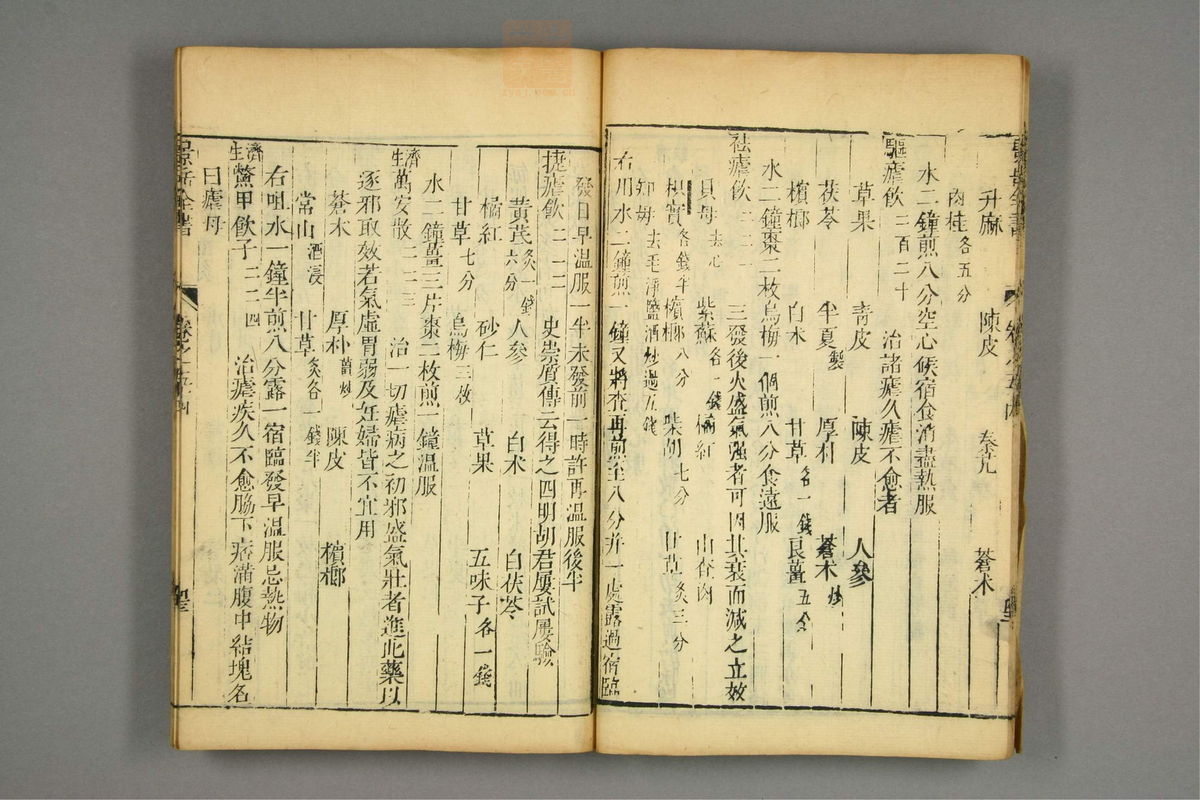 升麻 陳皮 蒼术
肉桂各五分
水二鐘煎八分空心候宿食消盡熱服
驅瘧飲二百二十 治諸瘧久瘧不愈者
草果 青皮 陳皮 人參
茯苓 半夏製 厚朴 蒼术炒
檳榔 白术 甘草各一錢 良薑五分
水二鐘棗二枚烏梅一個煎八分食遠服
祛瘧飲二二一 三發後火盛氣强者可因其衰而減之立效
貝母去心 紫蘇各一錢 橘紅 山查肉
枳實各錢半 檳榔八分 柴胡七分 甘草炙三分
知母去毛淨鹽酒炒過五錢
右用水二鐘煎一鐘又將查再煎至八分并一處露過宿臨
發日早温服一半未發前一時許再温服後半
捷瘧飲二二二 史崇質傳云得之四明胡君屢試屢驗
黃茋炙一錢六分 人參 白术 白茯苓
橘紅 砂仁 草果 五味子各一錢
甘草七分 烏梅三枚
水二鐘薑三片棗二枚煎一鐘温服
濟生萬安散二二三 治一切瘧病之初邪盛氣壯者進此藥以
逐邪取效若氣虛胃弱及妊婦皆不宜用
蒼术 厚朴薑炒 陳皮 檳榔
常山酒浸 甘草炙各一錢半
右咀水一鐘半煎八分露一宿臨發早温服忌熱物
濟生鱉甲飲子二二四 治瘧疾久不愈脇下痞滿腹中結塊名
曰瘧母
景岳全書 卷之五十四